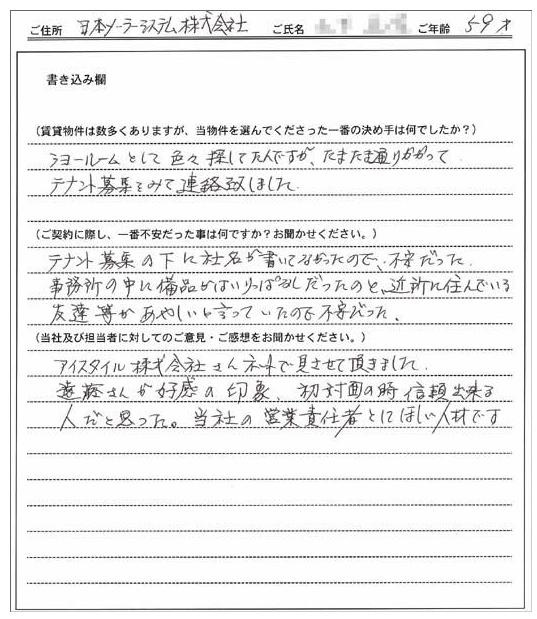 ご住所 日本ソーラーシステム株式会社 ご氏名 ご年齢 59才
書き込み欄
(賃貸物件は数多くありますが、当物件を選んでくださった一番の決め手は何でしたか?)
ショールームとして色々探してたんですが、たまたま通りかかって
テナント募集をみて連絡致しました
(ご契約に際し、一番不安だった事は何ですか?お聞かせください。)
テナント募集の下に社名が書いてなかったので、不安だった
事務所の中に備品がはいりっぱなしだったのと、近所に住んでいる
友達等があやしいと言っていたので不安だった、
(当社及び担当者に対してのご意見・ご感想をお聞かせください。)
アイスタイル株式会社さんネットで見させて頂きました
遠藤さんが好感の印象、初対面の時信頼出来る
人だと思った。当社の営業責任者とにほしい人材です